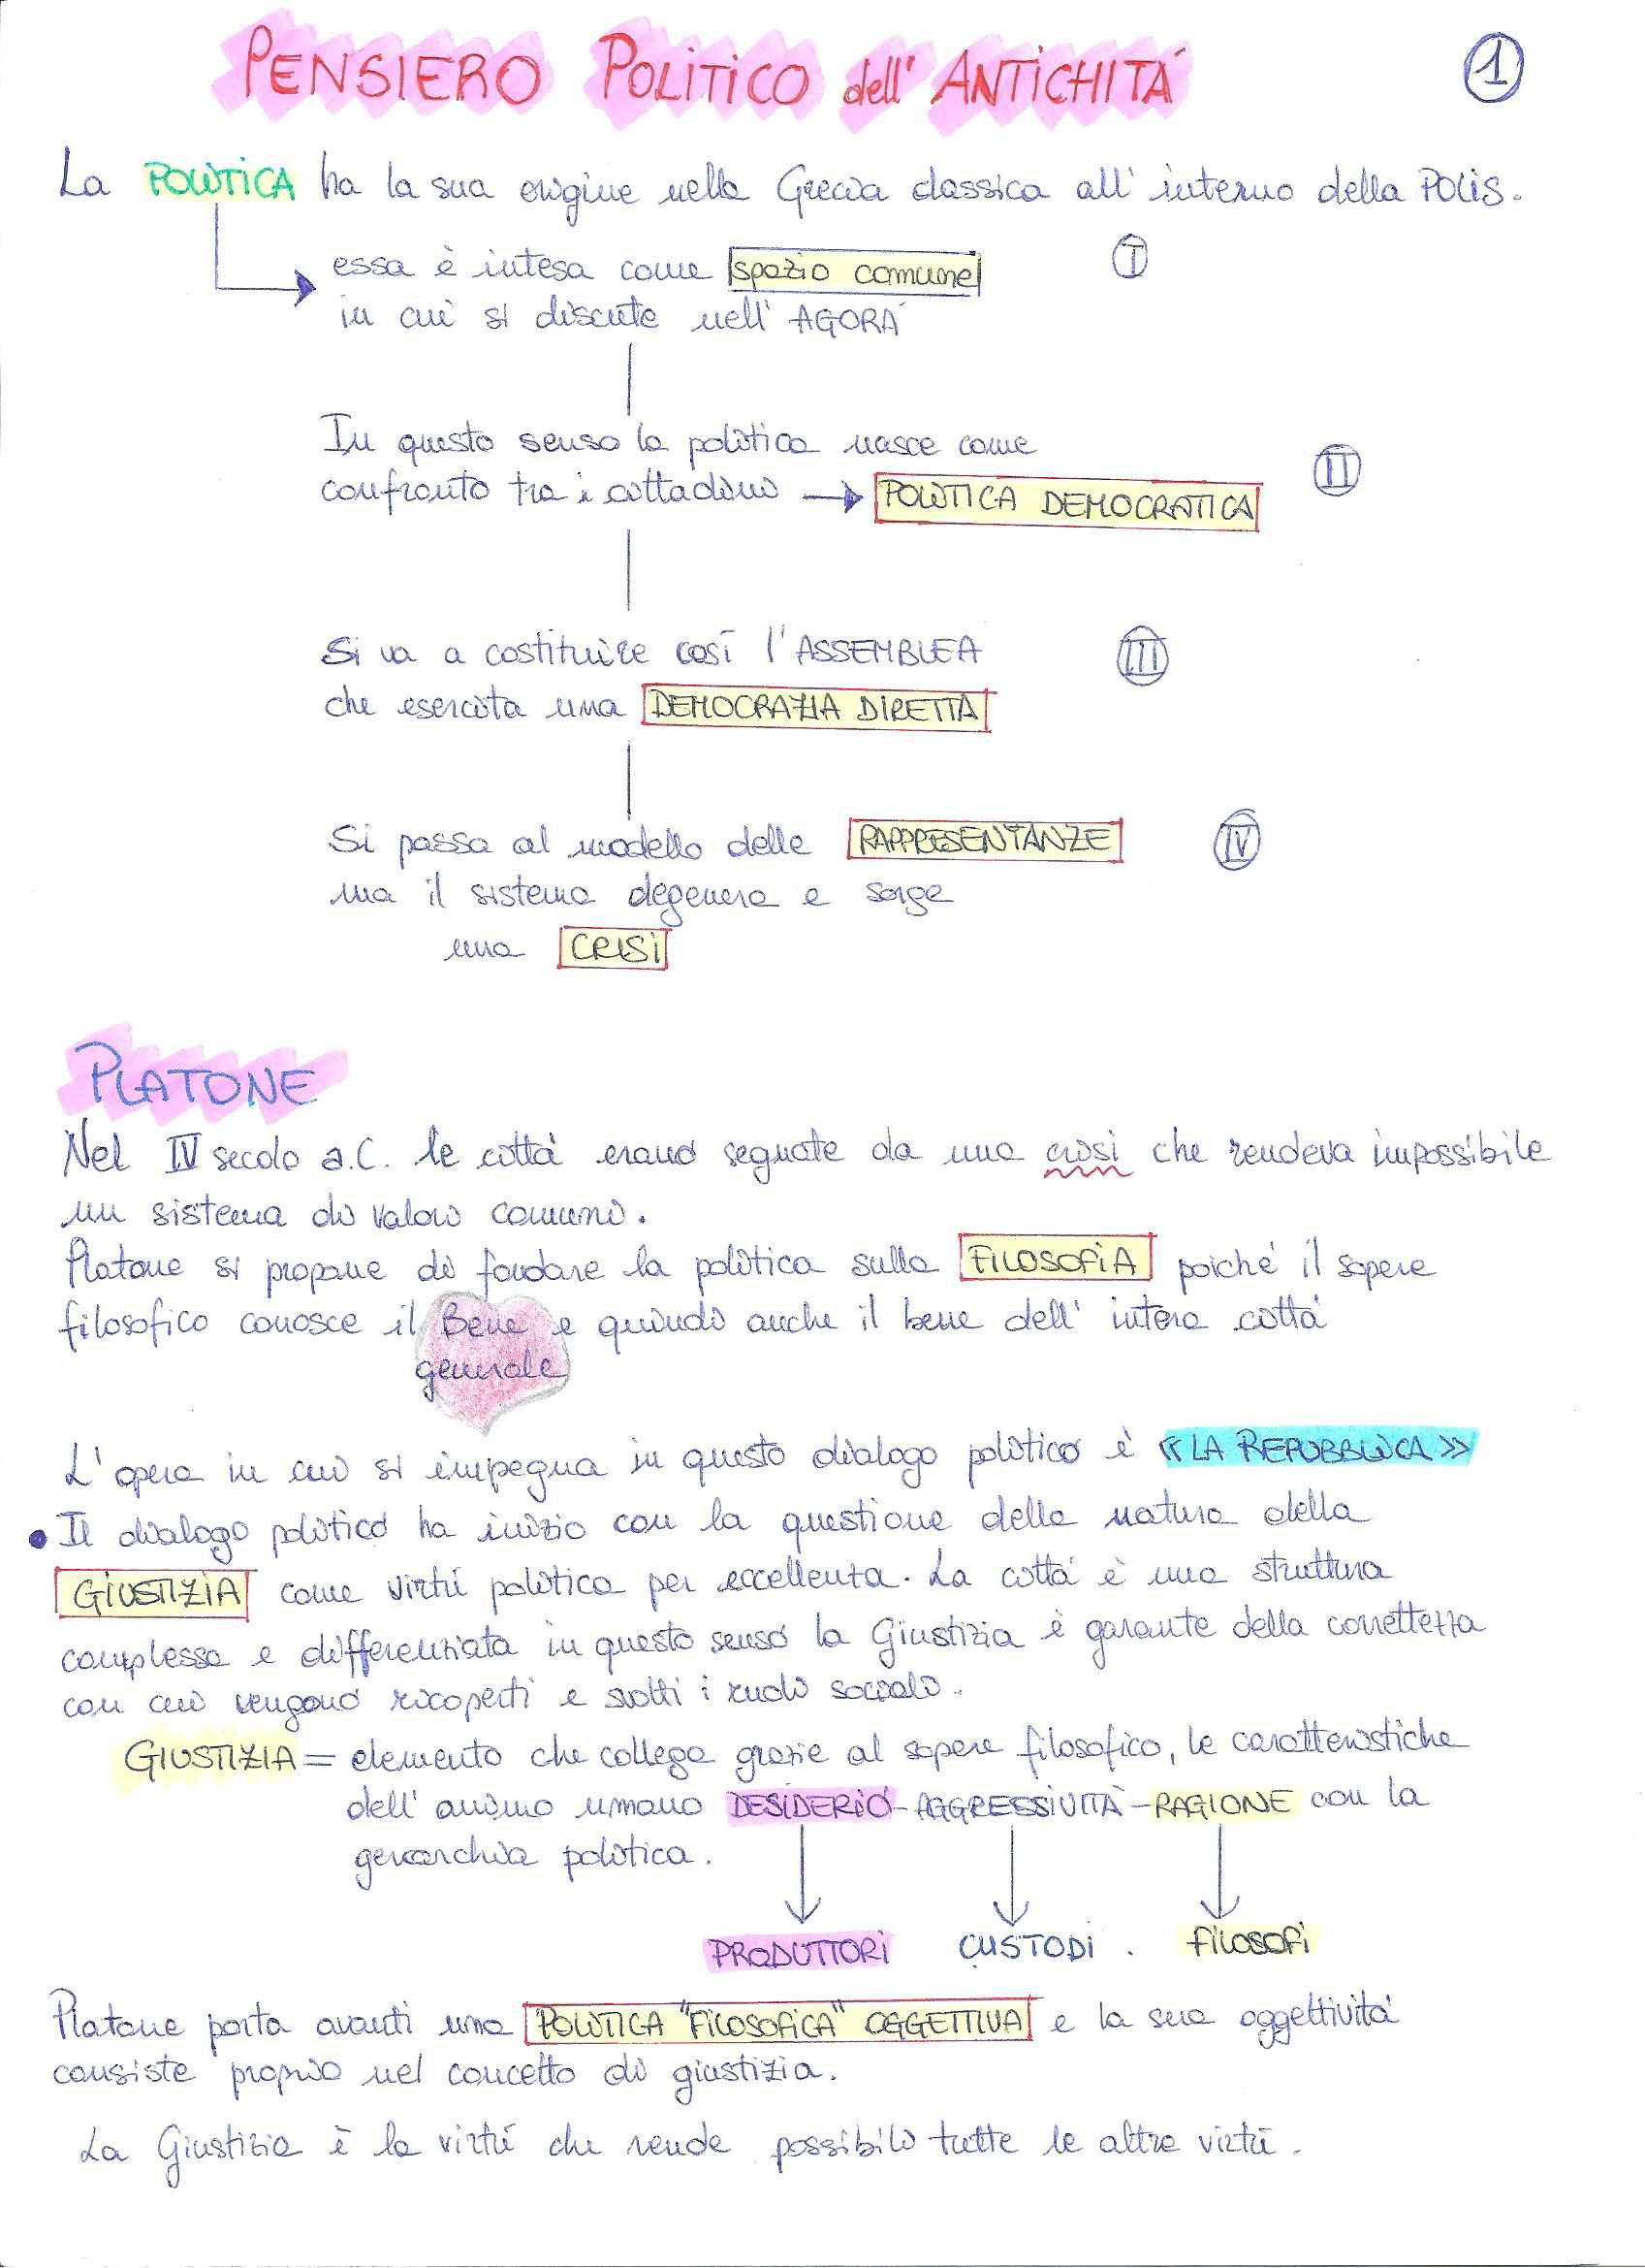 PENSIERO POLITICO dell' ANTICHITÁ
1
La POLITICA ha la sua origine nella Grecia classica all' interno della POLIS.
essa è intesa come spazio comune
I
in cui si discute nell' AGORÁ
In questo senso la politica nasce come
II
confronto tra i cittadini → POLITICA DEMOCRATICA
Si va a costituire così l'ASSEMBLEA
III
che esercita una DEMOCRAZIA DIRETTA
Si passa al modello delle RAPPRESENTANZE
IV
ma il sistema degenera e sorge
una CRISI
PLATONE
Nel IV secolo a.C. le cittá erano segnate da una crisi che rendeva impossibile
un sistema di valori comuni.
Platone si propone di fondare la politica sulla FILOSOFIA poiché il sapere
filosofico conosce il Bene e quindi anche il bene dell' intera cittá
generale
L' opera in cui si impegna in questo dialogo politico è «LA REPUBBLICA»
• Il dialogo politico ha inizio con la questione della natura della
GIUSTIZIA come virtú politica per eccellenza. La cittá è una struttura
complessa e differenziata in questo senso la Giustizia è garante della correttezza
con cui vengono ricoperti e svolti i ruoli sociali.
GIUSTIZIA = elemento che collega grazie al sapere filosofico, le caratteristiche
dell' animo umano DESIDERIO - AGGRESSIVITÀ - RAGIONE con la
gerarchia politica.
PRODUTTORI CUSTODI . FILOSOFI
Platone porta avanti una POLITICA "FILOSOFICA" OGGETTIVA e la sua oggettivitá
consiste proprio nel concetto di giustizia.
La Giustizia è la virtú che rende possibili tutte le altre virtú.